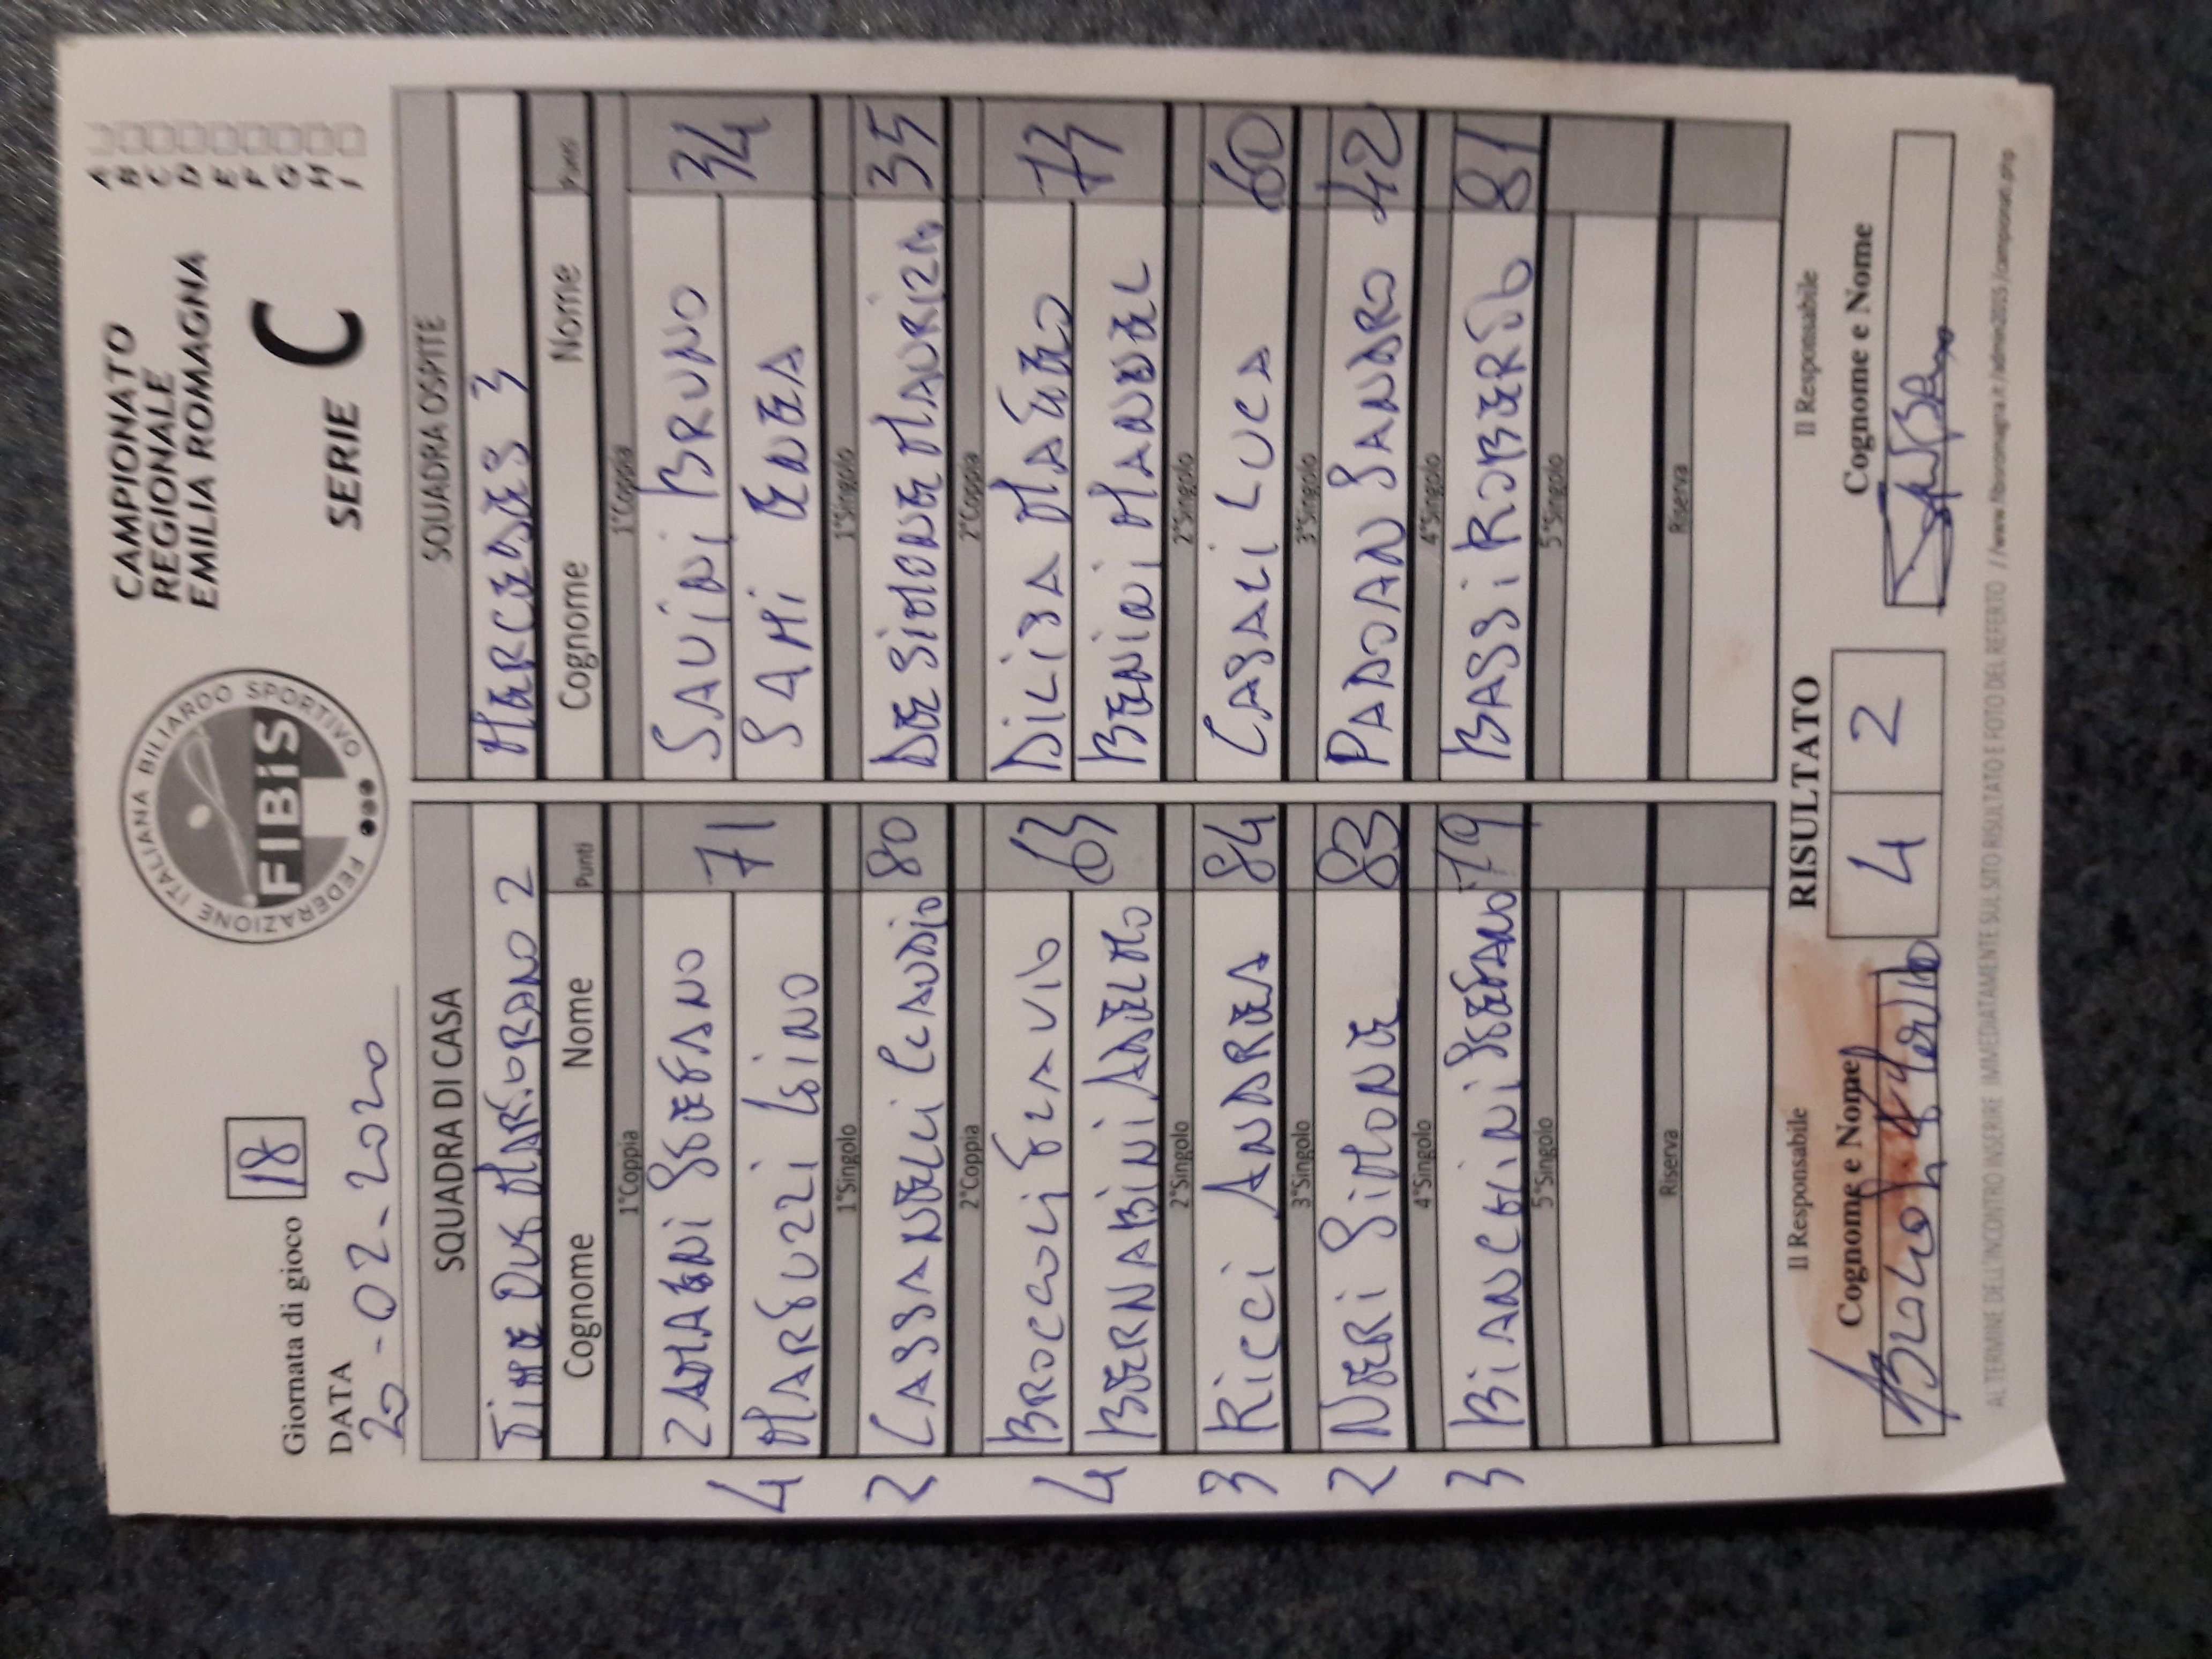 Giornata di gioco 18
DATA
20-02-2020
FEDERAZIONE ITALIANA BILIARDO SPORTIVO
FIBiS
CAMPIONATO
REGIONALE
EMILIA ROMAGNA
SERIE C
A
B
C
D
E
F
G
H
I
SQUADRA DI CASA
SQUADRA OSPITE
TIME OUT MARTORANO 2
MERCEDES 3
Cognome Nome Punti
Cognome Nome Punti
1°Coppia
1°Coppia
ZAMAGNI STEFANO 71
SAVINI BRUNO 34
4 MARFUZZI GINO
SAMI ENEA
1°Singolo
1°Singolo
2 CASSANELLI CLAUDIO 80
DE SIMONE MAURIZIO 35
2°Coppia
2°Coppia
BROCCOLI FLAVIO 63
DILISA MATTEO 73
4 BERNABINI ADELMO
BENINI MANUEL
2°Singolo
2°Singolo
3 RICCI ANDREA 84
CASALI LUCA 60
3°Singolo
3°Singolo
2 NERI SIMONE 83
PADOAN SANDRO 42
4°Singolo
4°Singolo
3 BIANCHINI STEFANO 79
BASSI ROBERTO 81
5°Singolo
5°Singolo
Riserva
Riserva
Il Responsabile
RISULTATO
Il Responsabile
Cognome e Nome
4 2
Cognome e Nome
AL TERMINE DELL'INCONTRO INSERIRE IMMEDIATAMENTE SUL SITO RISULTATO E FOTO DEL REFERTO